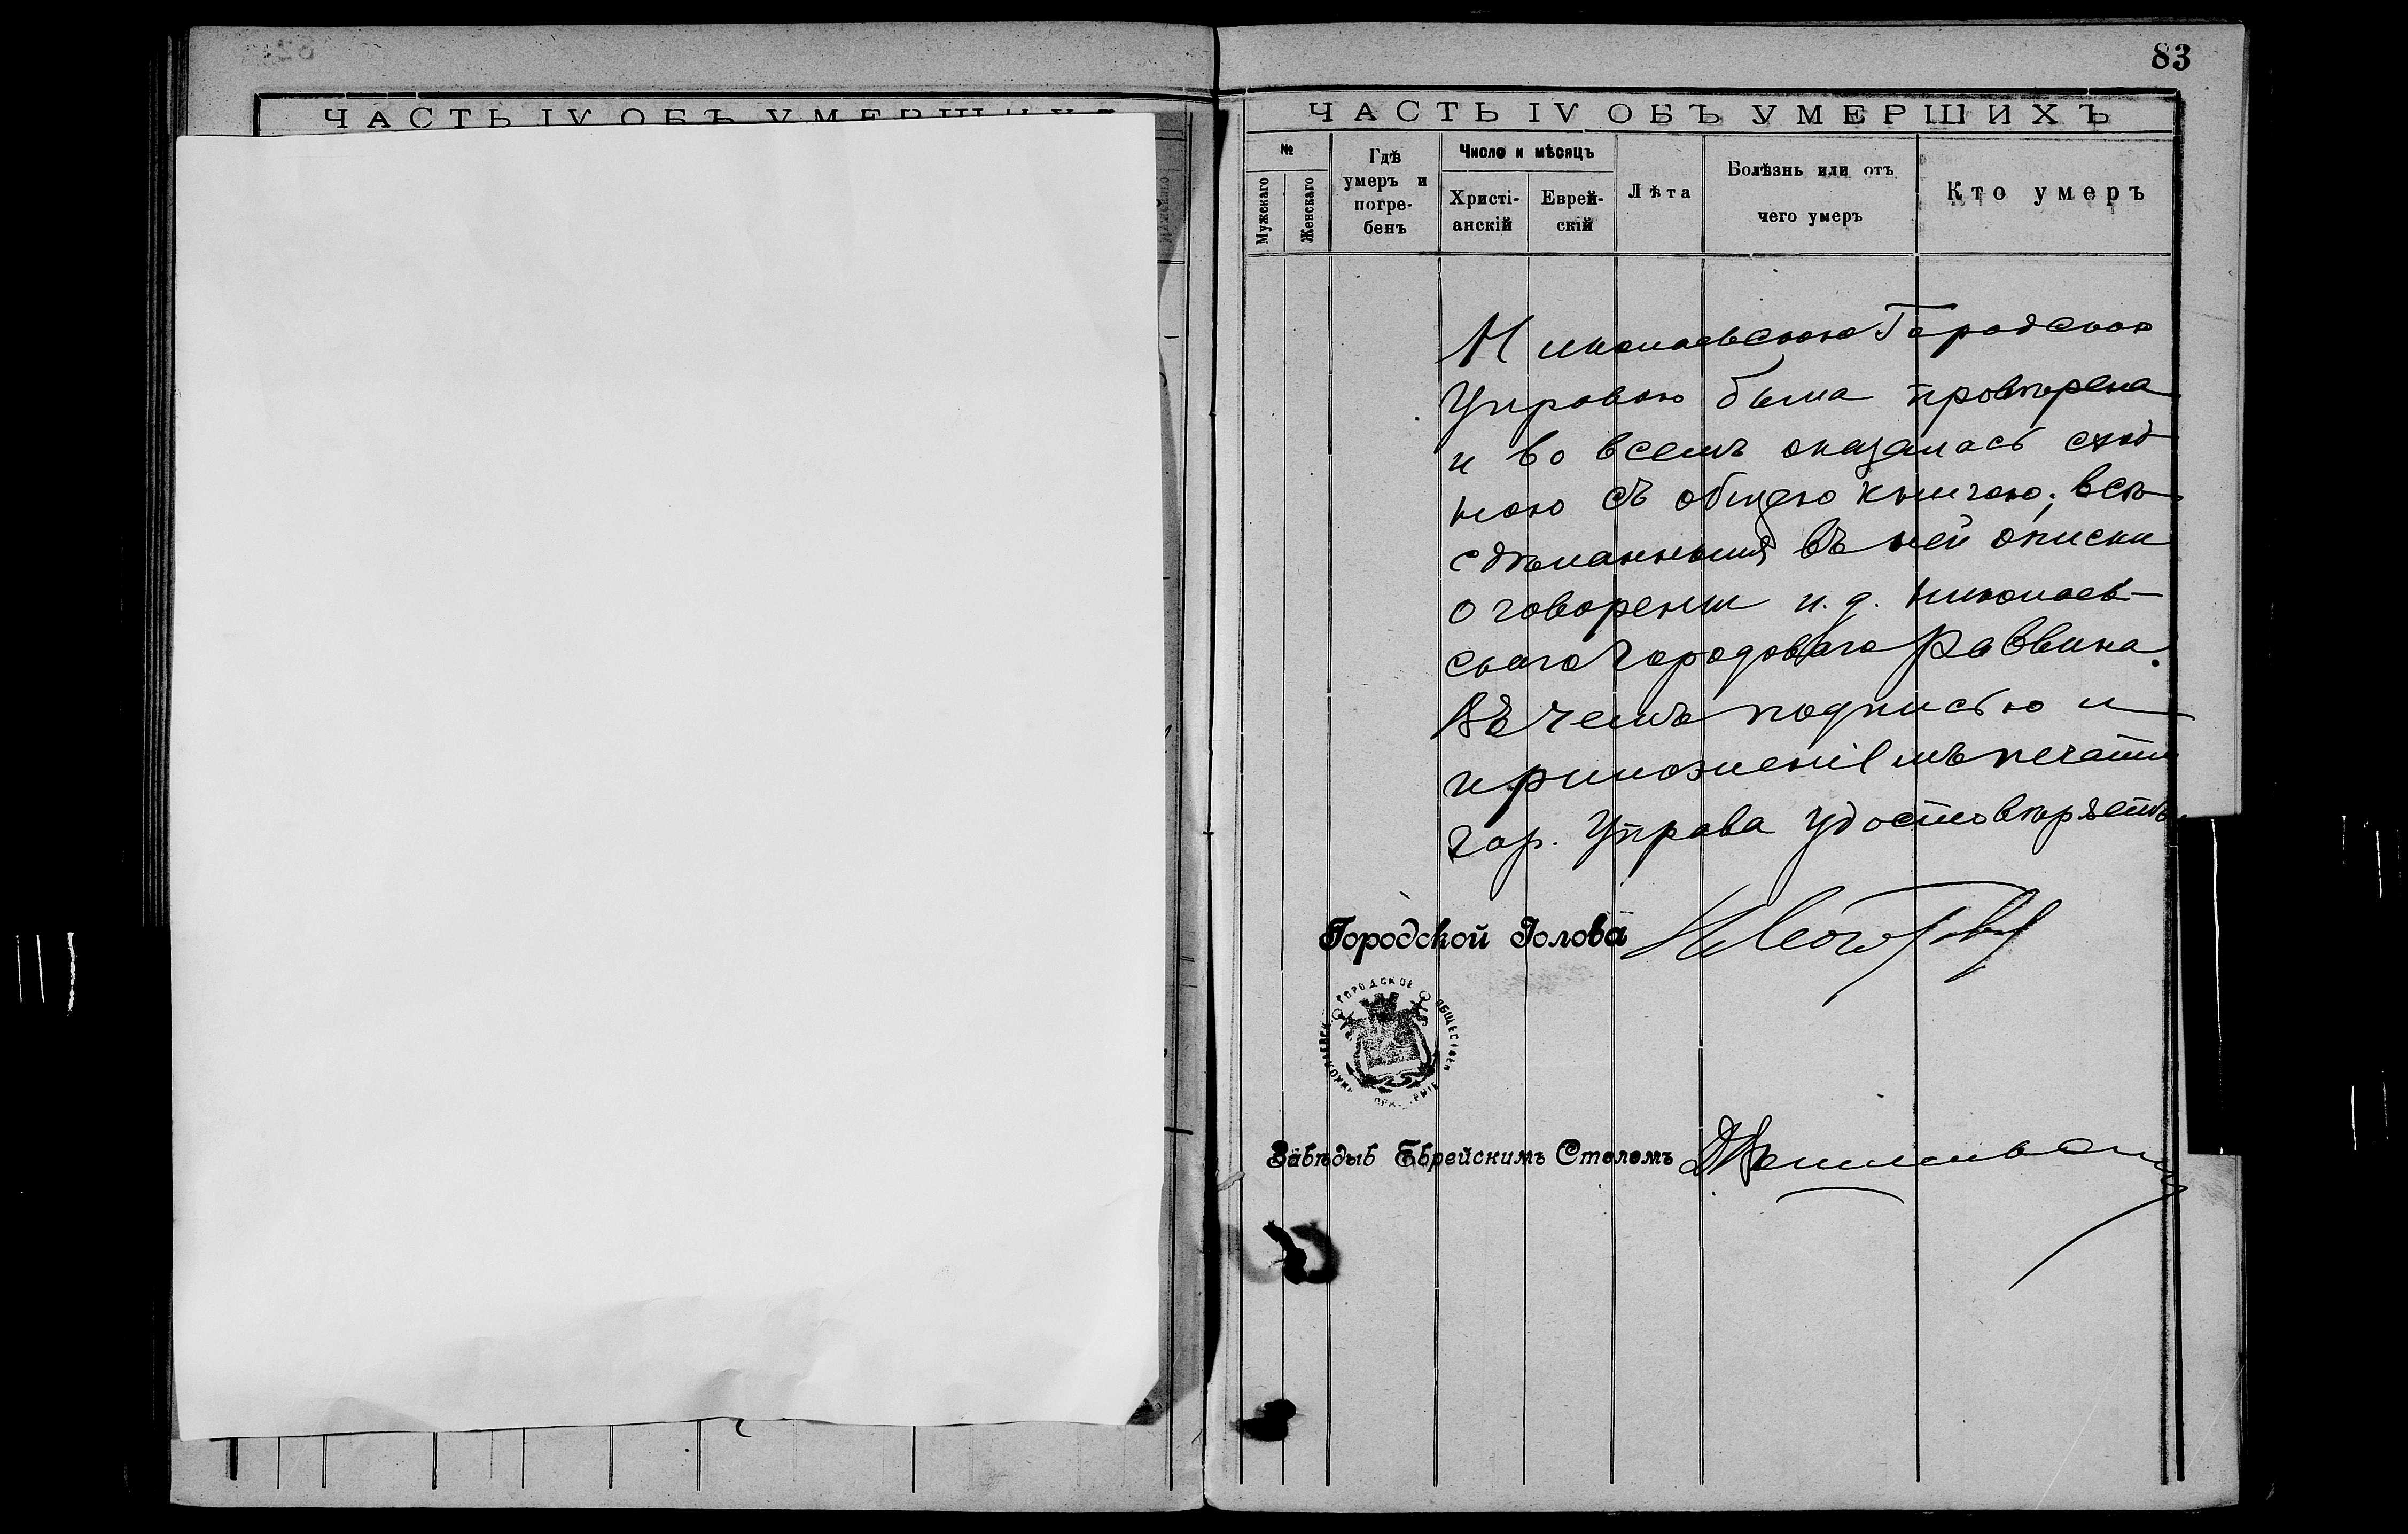 ЧАСТЬ IV ОБЪ УМЕРШИХЪ
83
ЧАСТЬ IV ОБЪ УМЕРШИХЪ
№
Мужскаго
Женскаго
Гдѣ
умеръ и
погре-
бенъ
Число и мѣсяцъ
Христі-
анскій
Еврей-
скій
Лѣта
Болѣзнь или отъ
чего умеръ
Кто умеръ
Николаевскою Городскою
Управою была провѣрена
и во всемъ оказалась сход
ною съ общею книгою; всѣ
сдѣланныя въ ней описки
оговорены и. д. Николаев-
скаго Городоваго Раввина.
Въ чемъ подписью и
приложеніемъ печати
гор. Управа удостовѣряетъ
Городской Голова
ГОРОДСКОЕ ОБЩЕСТВЕН
Завѣдыв Еврейскимъ Столомъ